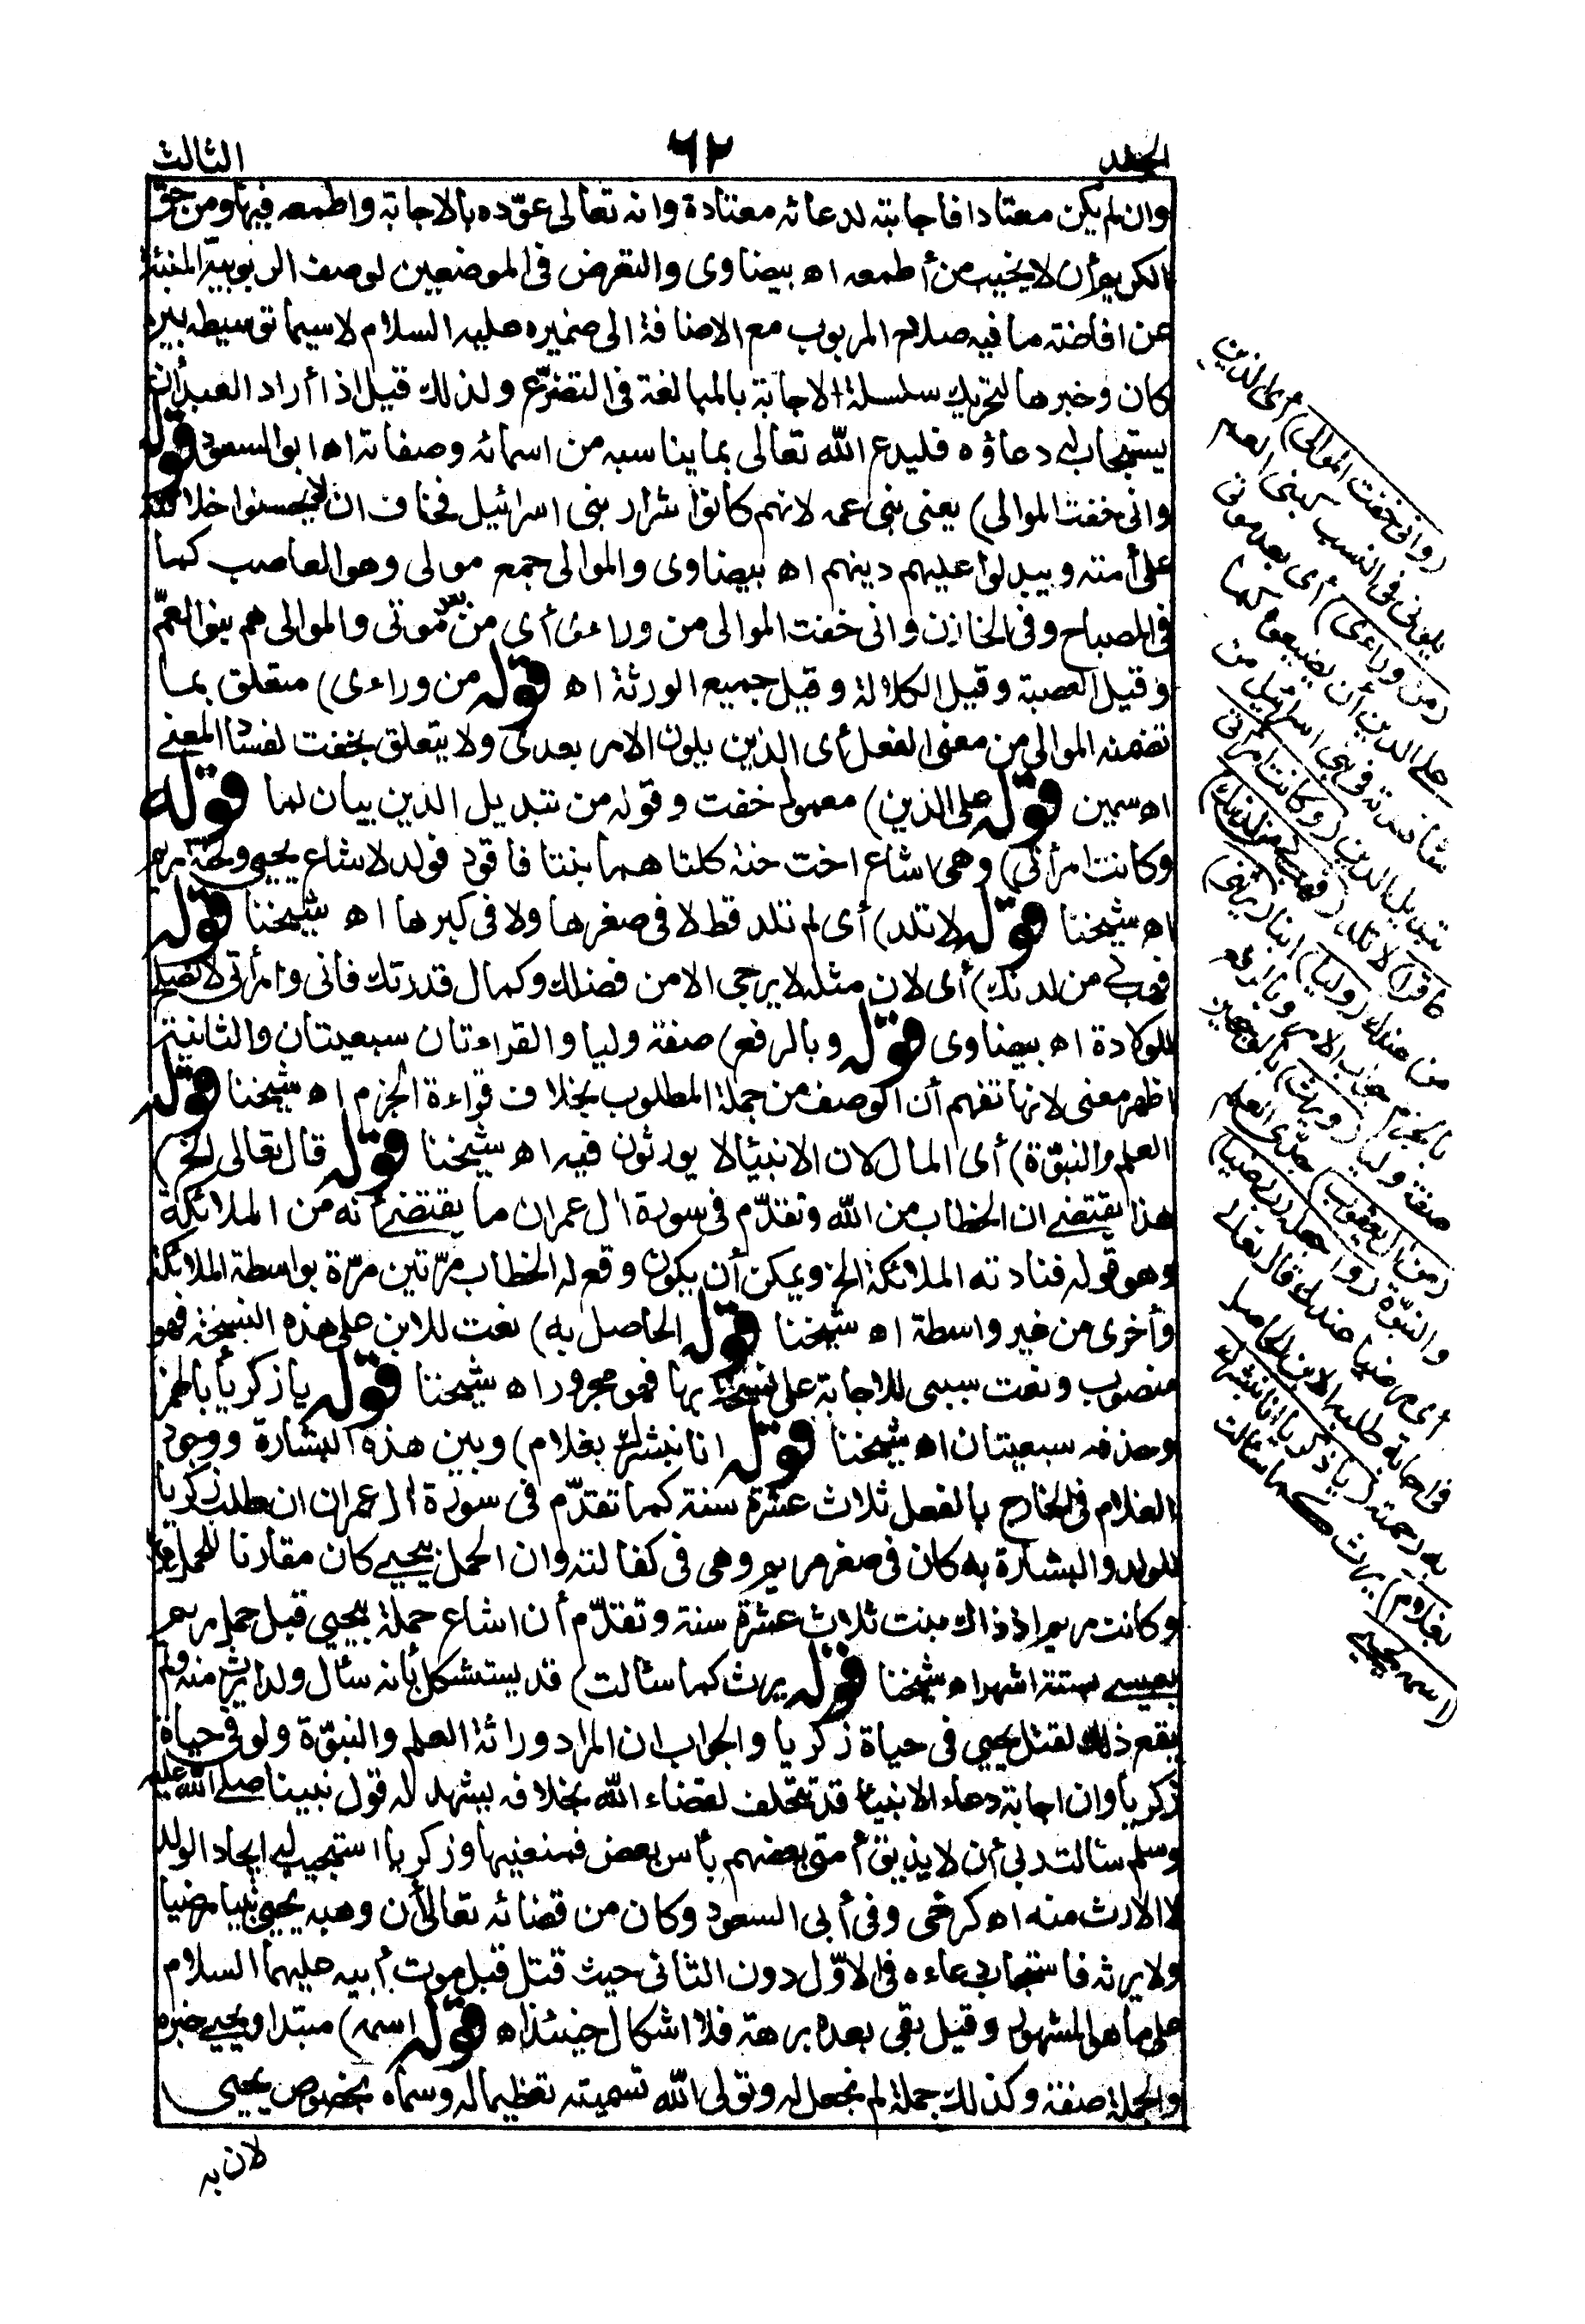 الجلد
٦٢
الثالث
وان لم يكن معتادا فاجابته لدعائه معتادة وانه تعالى عوّده بالاجابة واطمعه فيها ومن حق
الكريم أن لا يخيب من أطمعه اه بيضاوى والتعرض فى الموضعين لوصف الربوبية المنبئة
عن افاضته ما فيه صلاح المربوب مع الاضافة الى ضميره عليه السلام لا سيما توسيطه بين
كان وخبرها لتحريك سلسلة الاجابة بالمبالغة فى التضرّع ولذلك قيل اذا أراد العبد أن
يستجاب له دعاؤه فليدع الله تعالى بما يناسبه من اسمائه وصفاته اه ابوالسعود قوله
وانى خفت الموالى) يعنى بنى عمه لانهم كانوا شرار بنى اسرائيل فخاف ان لا يحسنوا خلافته
على أمته ويبدلوا عليهم دينهم اه بيضاوى والموالى جمع مولى وهو العاصب كما
فى المصباح وفى الخازن وانى خفت الموالى من وراءى أى من بعد موتى والموالى هم بنوا العمّ
وقيل العصبة وقيل الكلالة وقيل جميع الورثة اه قوله من وراءى) متعلق بما
تضمنه الموالى من معنى الفعل أى الذين يلون الامر بعدى ولا يتعلق بخفت لفساد المعنى
اه سمين قوله على الذين) معمول خفت وقوله من تبديل الدين بيان لما قوله
وكانت امرأتى) وهى اشاع اخت حنة كلتاهما بنتا فاقود فولد لاشاع يحيى ولحنة مريم
اه شيخنا قوله لا تلد) أى لم تلد قط لا فى صغرها ولا فى كبرها اه شيخنا قوله
فهب لى من لدنك) أى لان مثله لا يرجى الا من فضلك وكمال قدرتك فانى وامرأتى لا نصلح
للولادة اه بيضاوى قوله وبالرفع) صفة وليا والقراءتان سبعيتان والثانية
اظهر معنى لانها تفهم أن الوصف من جملة المطلوب بخلاف قراءة الجزم اه شيخنا قوله
العلم والنبوّة) أى المال لان الانبيا لا يورثون فيه اه شيخنا قوله قال تعالى الخ)
هذا يقتضى ان الخطاب من الله وتقدّم فى سورة اٰل عمران ما يقتضى أنه من الملائكة
وهو قوله فنادته الملائكة الخ ويمكن أن يكون وقع له الخطاب مرّتين مرّة بواسطة الملائكة
وأخرى من غير واسطة اه شيخنا قوله الحاصل به) نعت للابن على هذه النسخة فهو
منصوب ونعت سببى للاجابة على نسخة بها فهو مجرور اه شيخنا قوله يا زكريا) بالهمز
وحذفه سبعيتان اه شيخنا قوله انا نبشرك بغلام) وبين هذه البشارة ووجود
الغلام فى الخارج بالفعل ثلاث عشرة سنة كما تقدّم فى سورة اٰل عمران ان طلب زكريا
للولد والبشارة به كان فى صغر مريم وهى فى كفالته وان الحمل بيحيى كان مقارنا للحمل
وكانت مريم اذ ذاك بنت ثلاث عشرة سنة وتقدّم أن اشاع حملت بيحيى قبل حمل مريم
بعيسى بستة اشهر اه شيخنا قوله يرث كما سئالت) قد يستشكل بأنه سئال ولدا يرث منه ولم
يقع ذلك لقتل يحيى فى حياة زكريا والجواب ان المراد وراثة العلم والنبوّة ولو فى حياة
زكريا وان اجابة دعاء الانبياء قد تتخلف لقضاء الله بخلافه يشهد له قول نبينا صلى الله عليه
وسلم سئالت ربى أن لا يذيق أمتى بعضهم بأس بعض فمنعنيها وزكريا استجيب له ايجاد الولد
لا الارث منه اه كرخى وفى أبى السعود وكان من قضائه تعالى أن وهبه يحيى نبيا مرضيا
ولا يرثه فاستجاب دعاءه فى الاوّل دون الثانى حيث قتل قبل موت أبيه عليهما السلام
على ما هو المشهور وقيل بقى بعده برهة فلا اشكال حينئذ اه قوله اسمه) مبتدا ويحيى خبره
والجملة صفة وكذلك جملة لم نجعل له وتولى الله تسميته تعظيما له وسماه بخصوص يحيى
لان به
(وانى خفت الموالى) أى الذين
يلونى فى النسب كبنى العم
(من وراءى) أى بعد موتى
على الدين أن يضيعوه كما
شاهدته فى بنى اسرائيل من
تبديل الدين (وكانت امرأتى
عاقرا) لا تلد (فهب لى من لدنك)
من عندك (وليا) ابنا (يرثنى)
بالجزم جواب الامر وبالرفع
صفة وليا (ويرث) بالوجهين
(من اٰل يعقوب) جدّى العلم
والنبوّة (واجعله رب رضيا)
أى مرضيا عندك قال تعالى
فى اجابة طلبه الابن الحاصل
به رحمته (يا زكريا انا نبشرك
بغلام) يرث كما سئالت
(اسمه يحيى